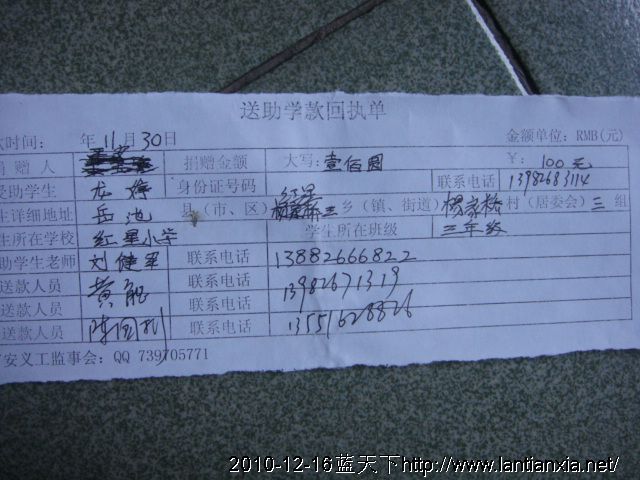 送助学款回执单
时间: 年 11月 30日 金额单位: RMB(元)
捐赠人 捐赠金额 大写: 壹佰圆 ¥: 100元
受助学生 龙婷 身份证号码 联系电话 13982683114
生详细地址 岳池 县(市、区) 红星 乡(镇、街道) 杨家桥 村(居委会) 三 组
生所在学校 红星小学 学生所在班级 三年级
助学生老师 刘健军 联系电话 13882666822
送款人员 黄 联系电话 13982671319
送款人员 陈国利 联系电话 13551628826
安义工监事会: QQ 739705771
2010-12-16蓝天下http://www.lantianxia.net/